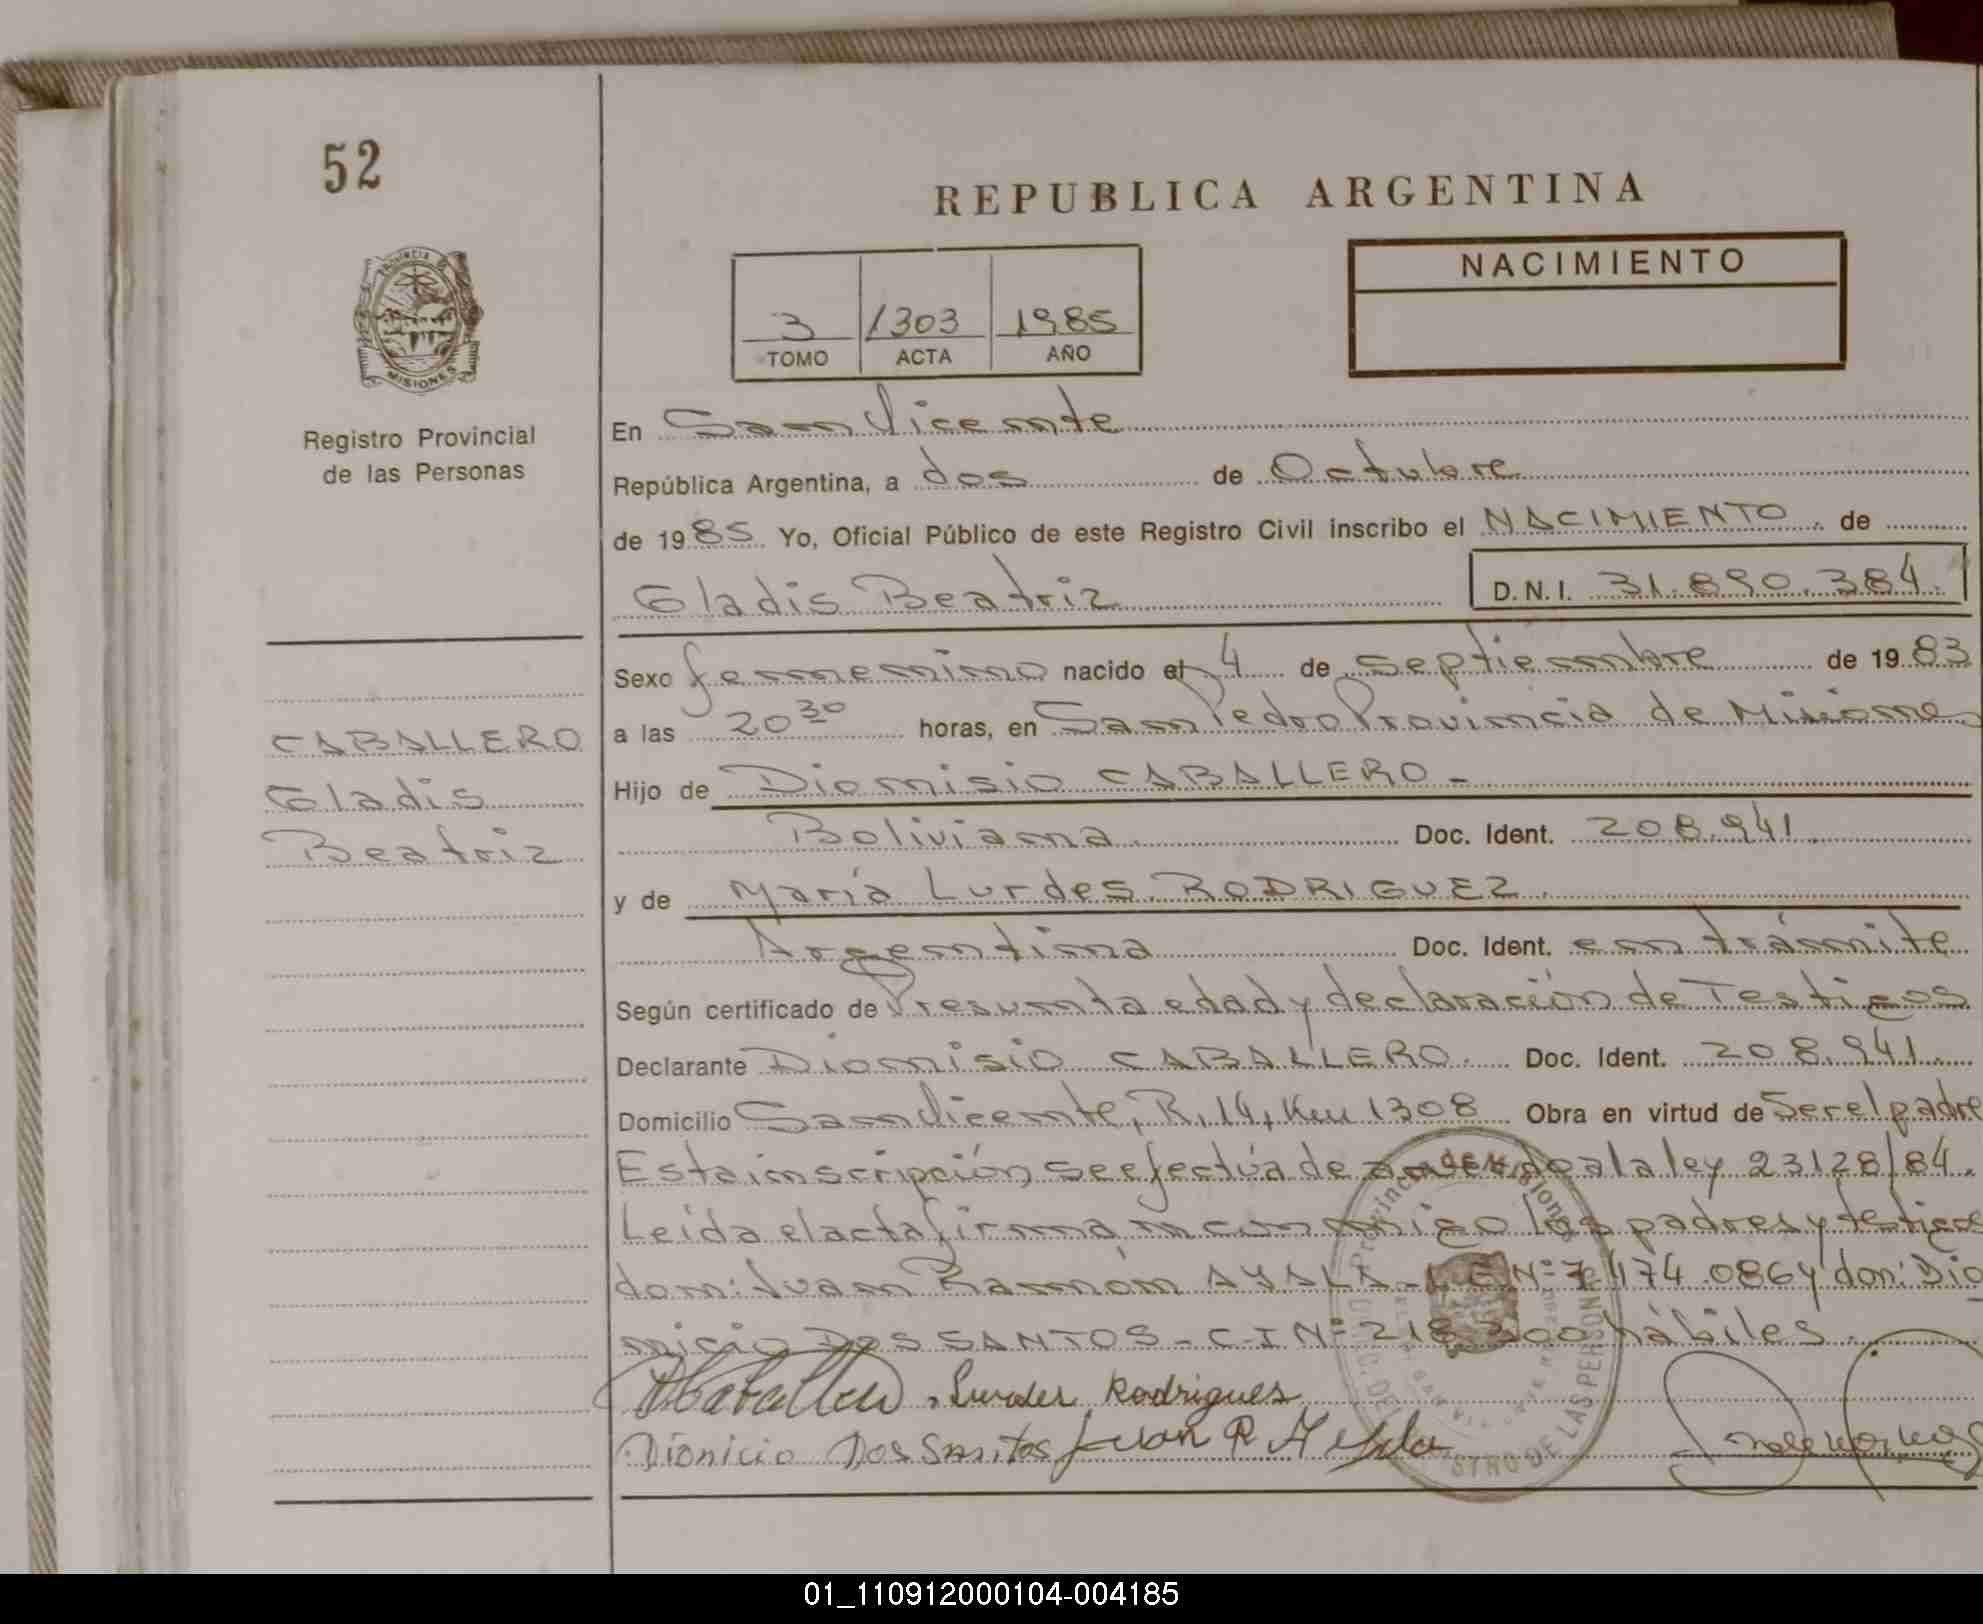 52
REPUBLICA ARGENTINA
NACIMIENTO
3 1303 1985
TOMO ACTA AÑO
PROVINCIA DE
MISIONES
Registro Provincial
de las Personas
En San Vicente
República Argentina, a dos de Octubre
de 1985 Yo, Oficial Público de este Registro Civil inscribo el NACIMIENTO. de
Gladis Beatriz D.N.I. 31.890.384.
Sexo femenino nacido el 4 de septiembre de 1983
a las 20 30 horas, en San Pedro Provincia de Misiones
CABALLERO
Gladis
Beatriz
Hijo de Dionisio CABALLERO -
Boliviana. Doc. Ident. 208.941.
y de María Lurdes RODRIGUEZ.
Argentina Doc. Ident. en trámite
Según certificado de Presunta edad y declaración de Testigos
Declarante Dionisio CABALLERO. Doc. Ident. 208.941.
Domicilio San Vicente, R.14, Km 1308 Obra en virtud de Ser el padre
Esta inscripción se efectúa de acuerdo a la ley 23128/84.
Leída el acta firman conmigo los padres y testigos
don: Juan Ramón AYALA - L.E Nº 7.474.086 y don: Dio
nicio DOS SANTOS - C.I Nº 218.300 hábiles.
DCaballero Lurdes Rodrigues
Dionicio Dos Santos Juan R Ayala
01_110912000104-004185